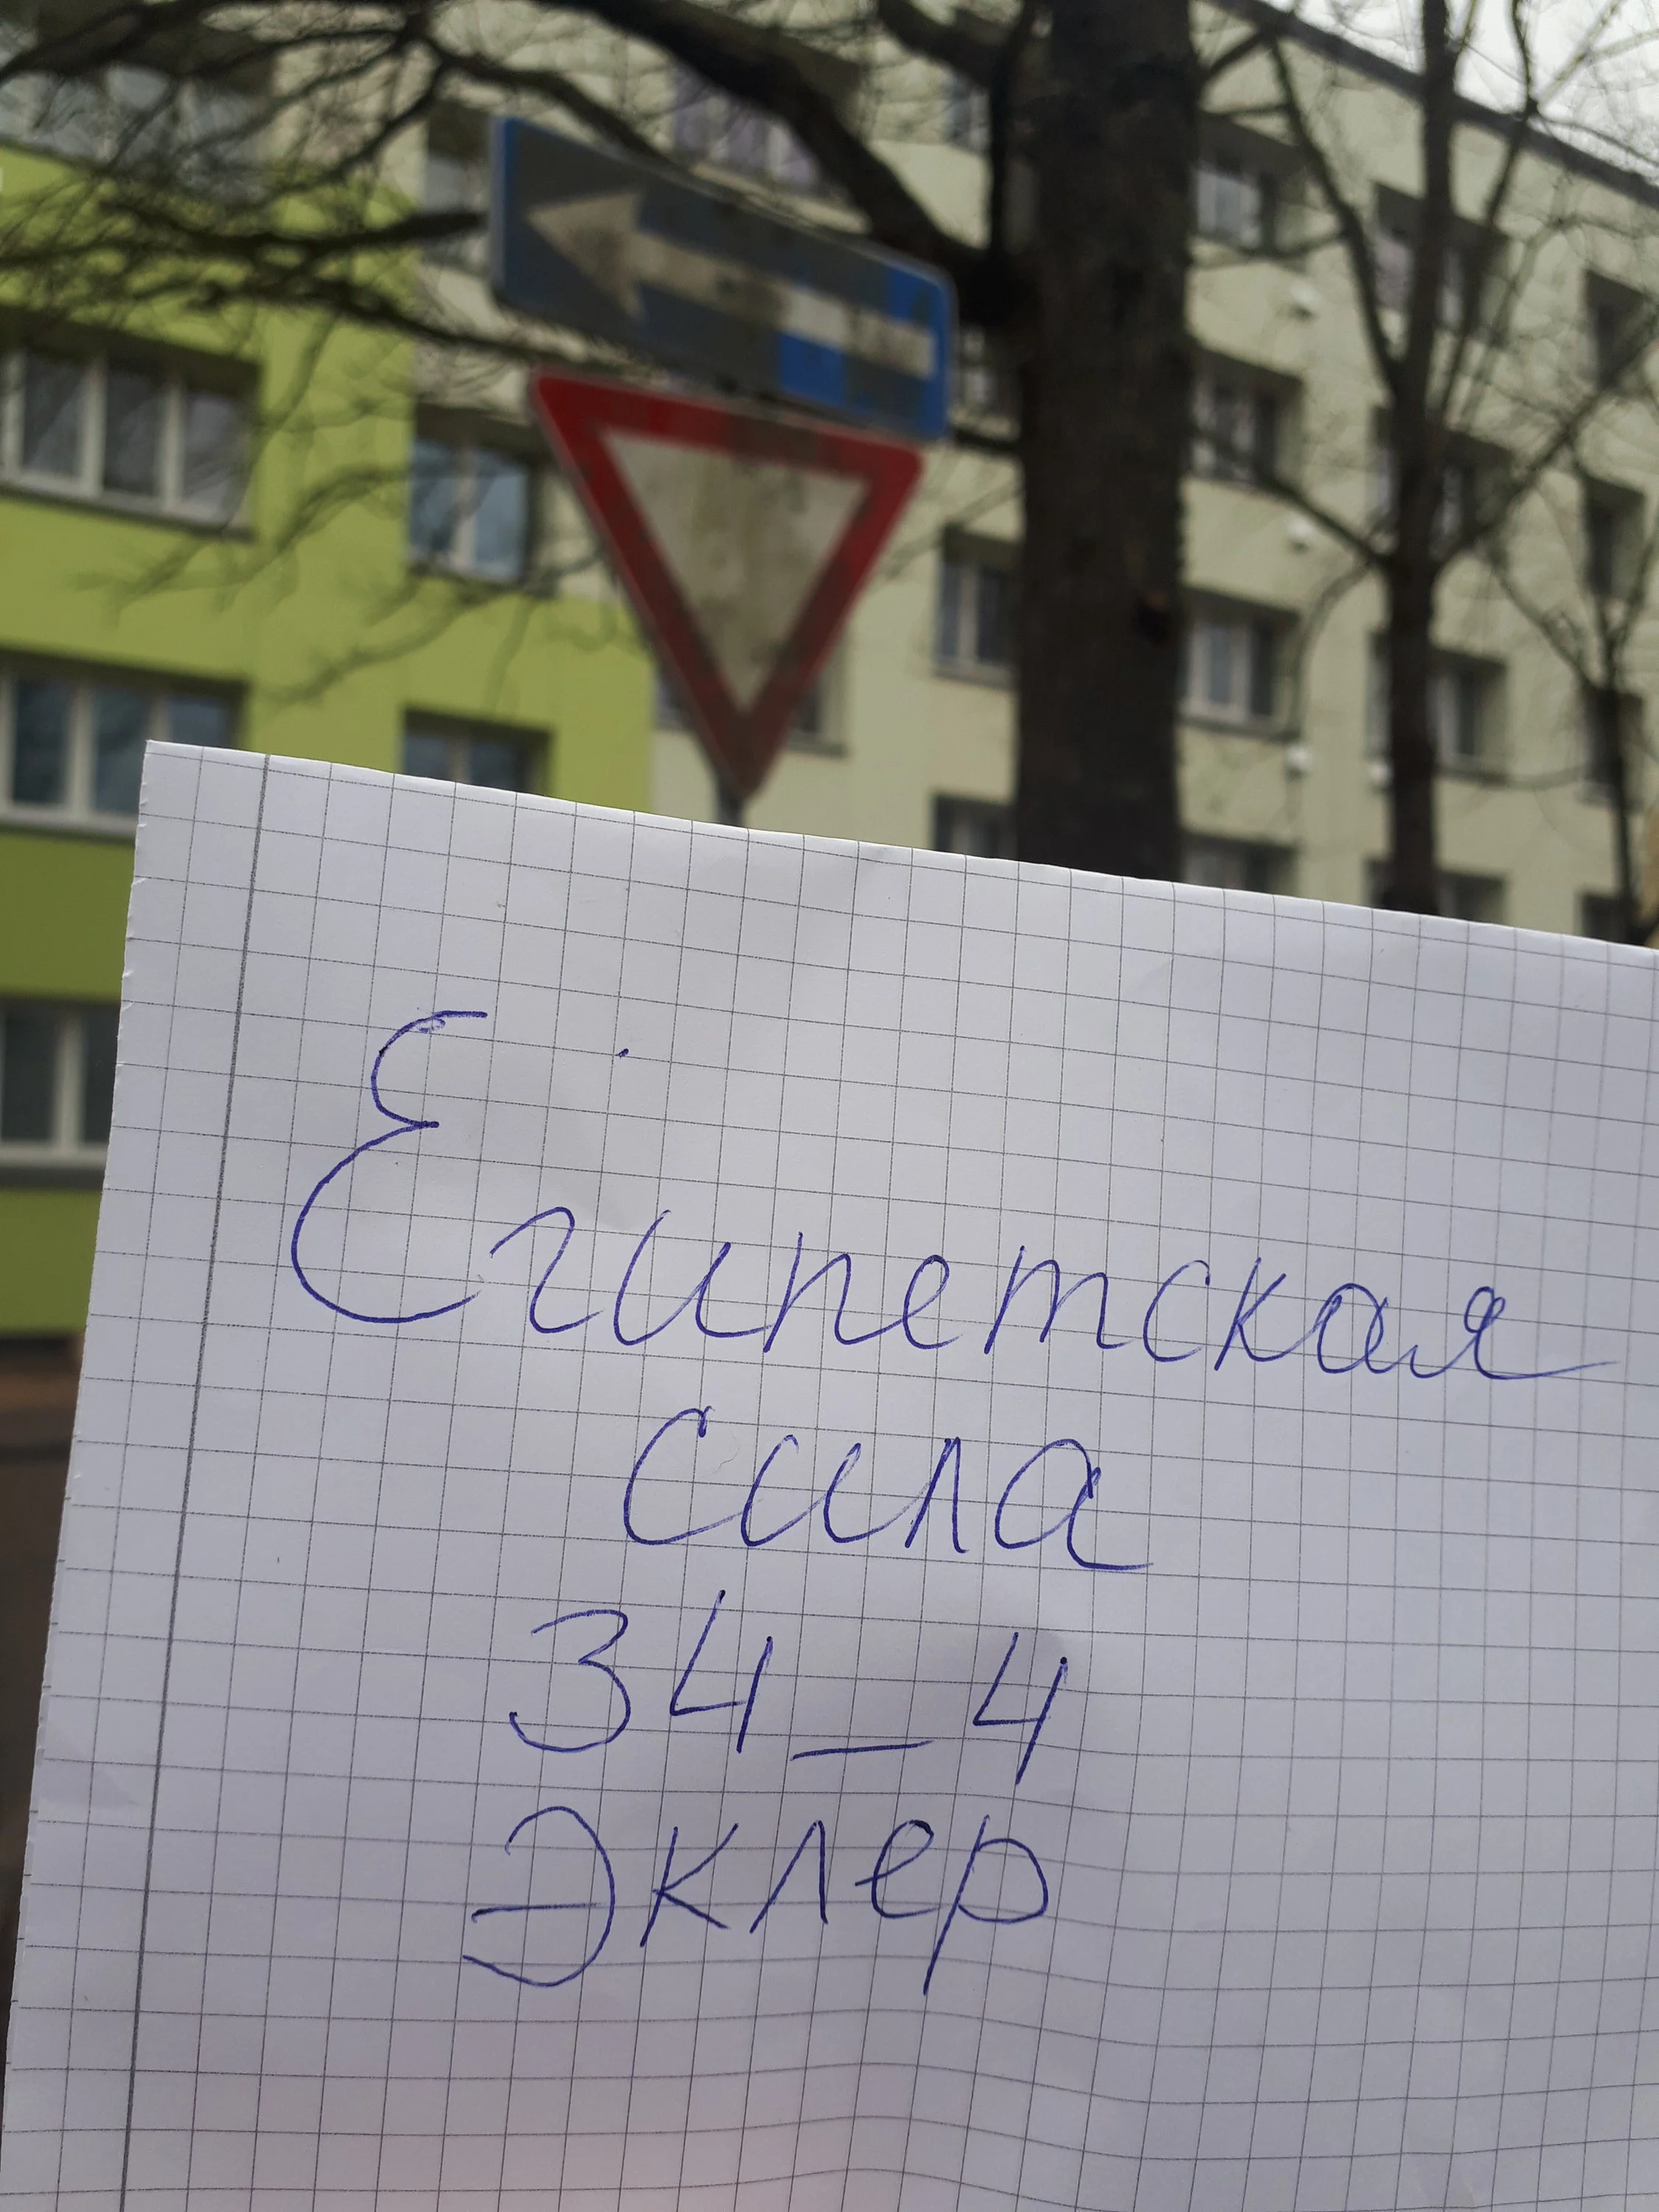 Египетская
сила
34_4
Эклер